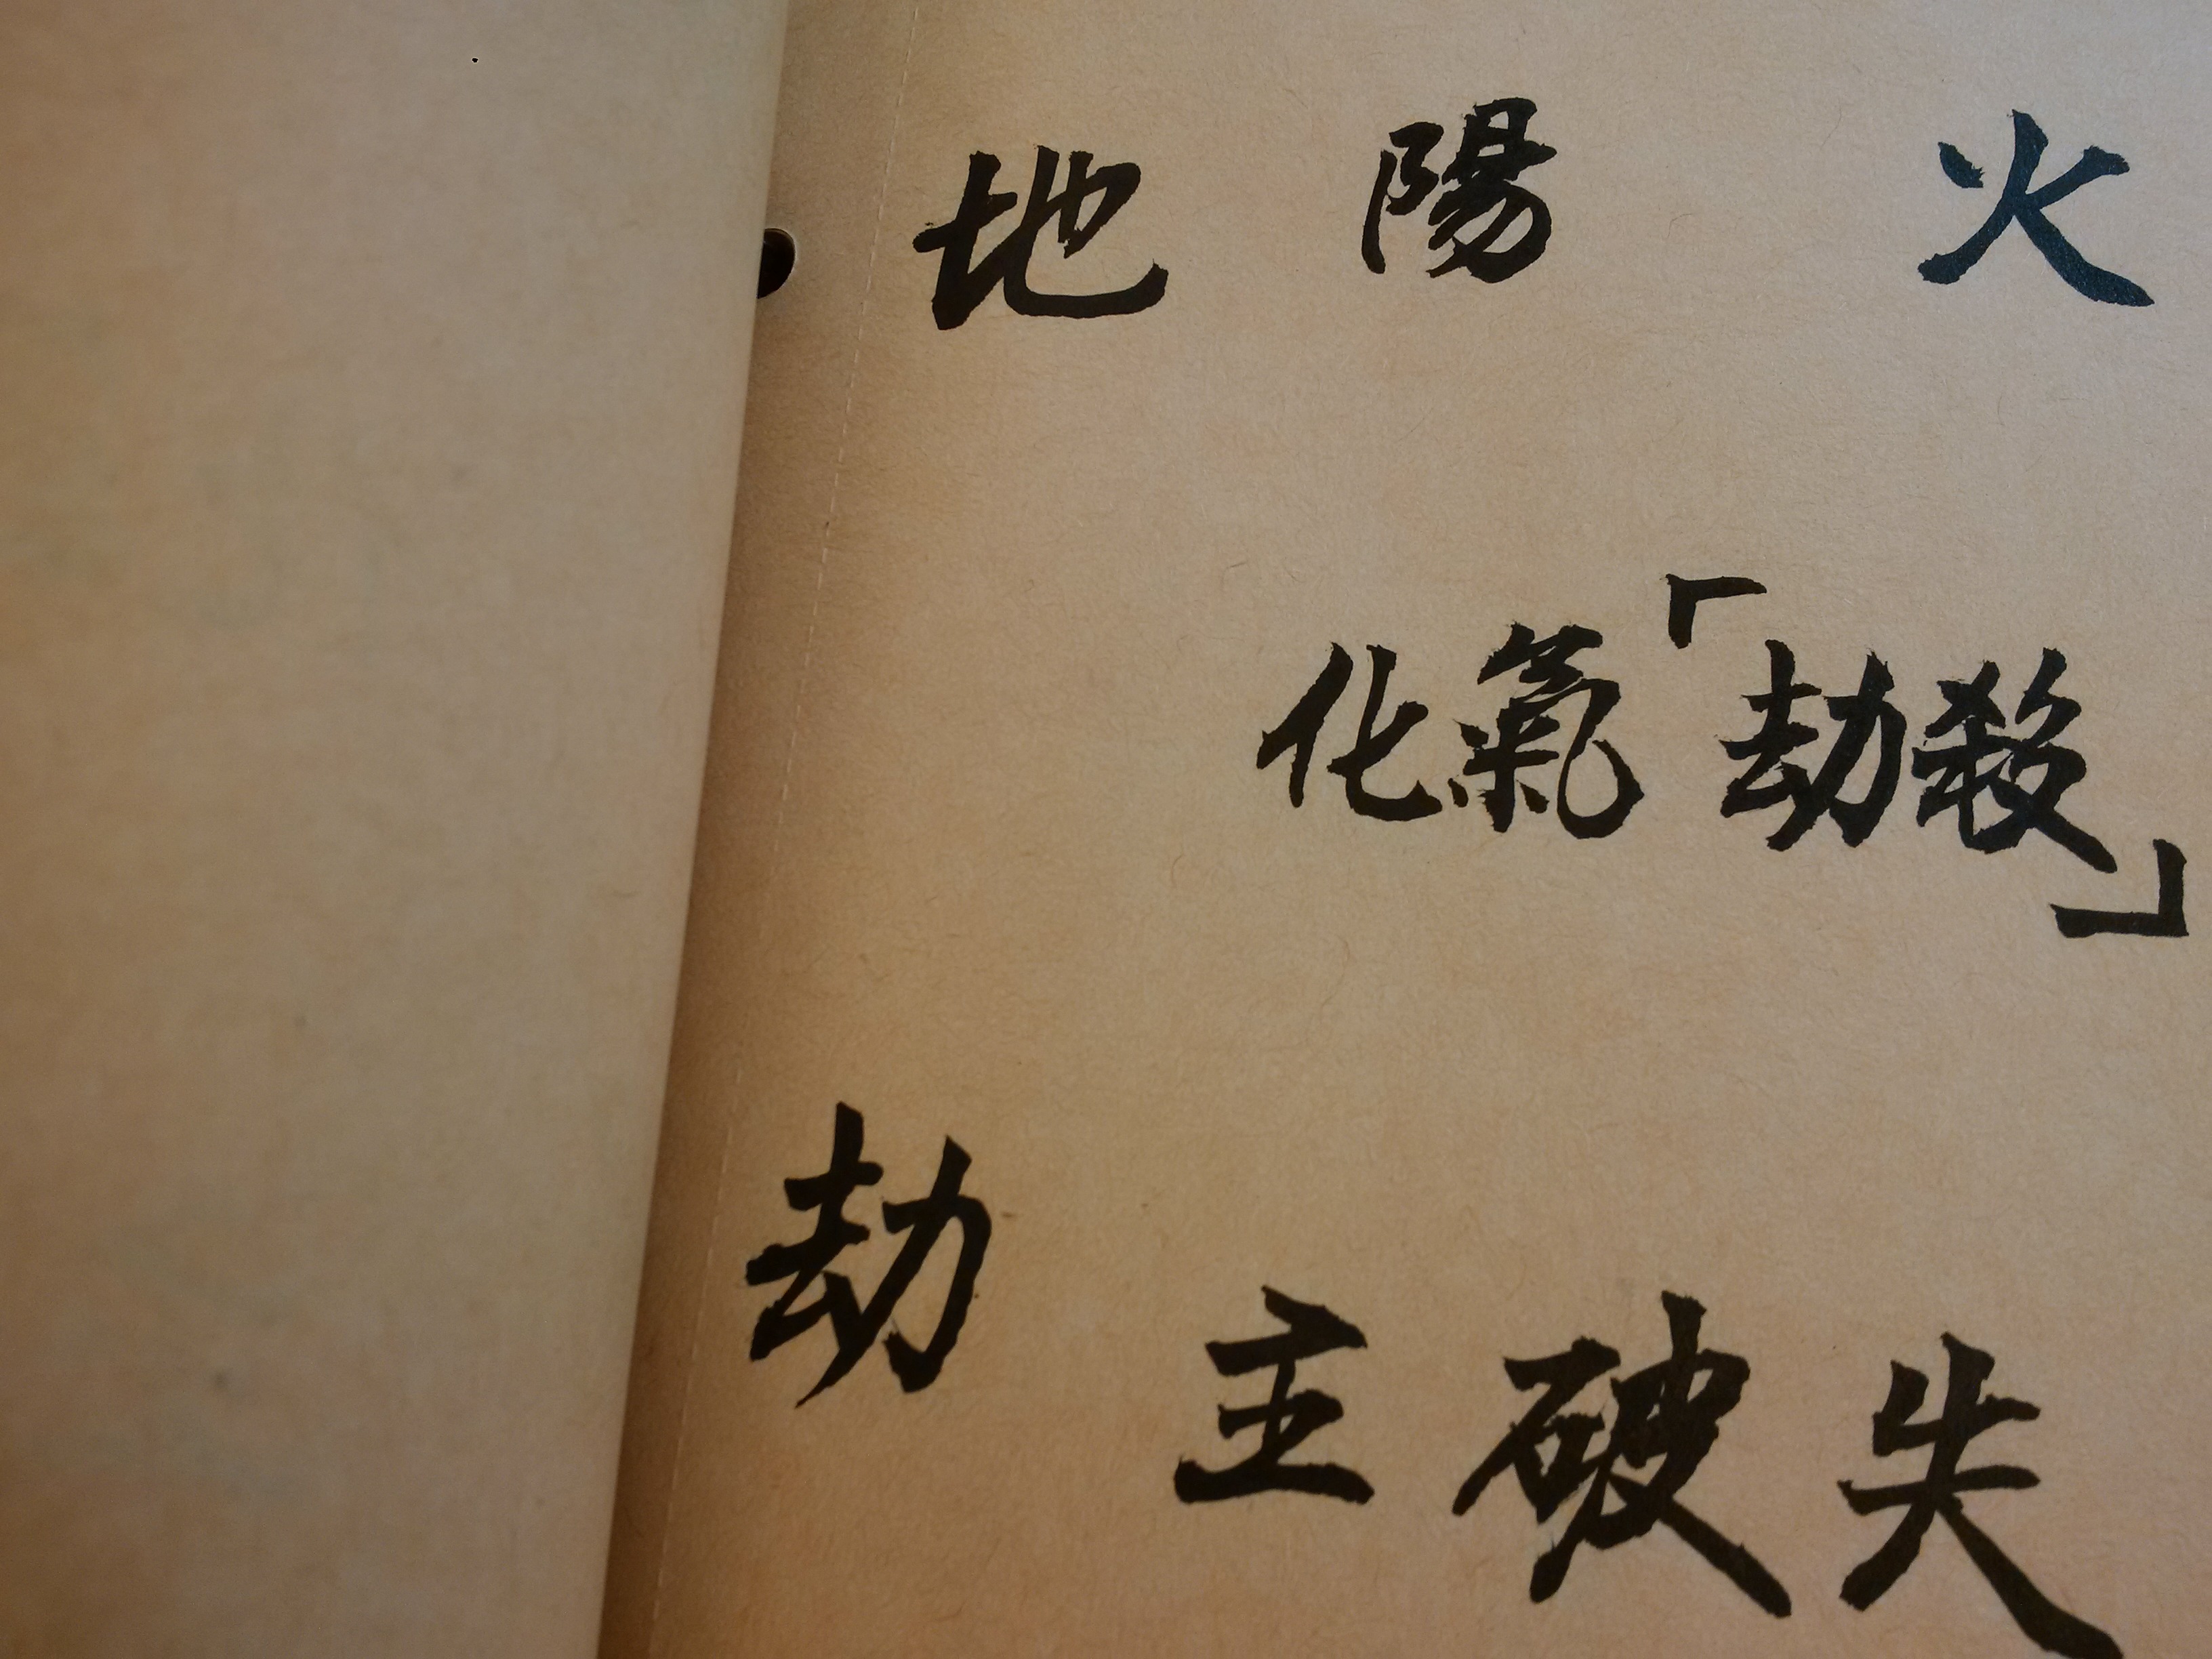 地劫
陽火
化氣「劫殺」
主破失